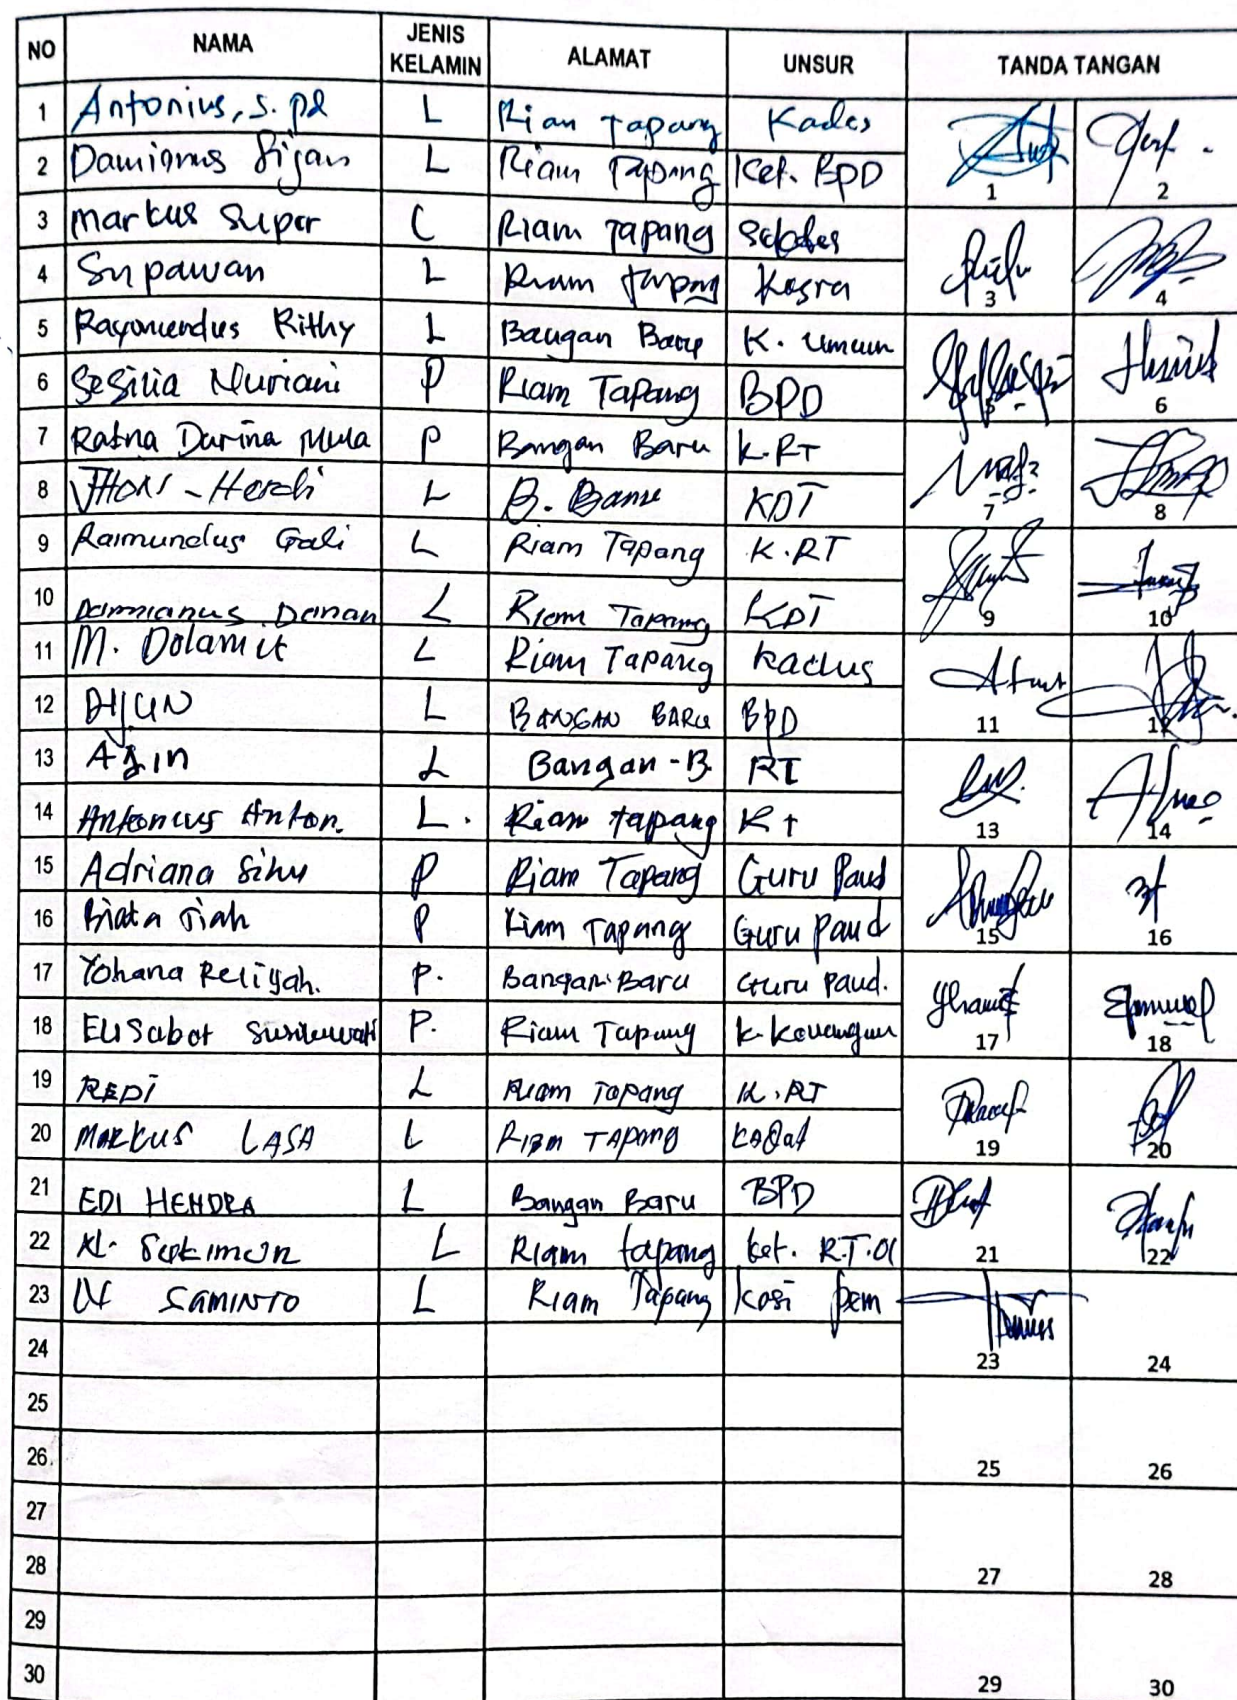 NO NAMA JENIS KELAMIN ALAMAT UNSUR TANDA TANGAN
1 Antonius, S.pd L Riam Tapang Kades
2 Damianus Sijan L Riam Tapang Ket. BPD 1 2
3 Markus Super L Riam Tapang Sekdes
4 Supawan L Riam tapang Kesra 3 4
5 Raymundus Rithy L Bangan Baru K. umum
6 Sesilia Nuriani P Riam Tapang BPD 5 6
7 Ratna Darina Mula P Bangan Baru K.RT
8 JHONS - Herdi L B. Baru KDT 7 8
9 Raimundus Gali L Riam Tapang K.RT
10 Damianus Danan L Riam Tapang KDT 9 10
11 M. Dolamit L Riam Tapang Kadus
12 DIJUN L BANGAN BARU BPD 11 12
13 Azin L Bangan-B. RT
14 Antonius Anton. L. Riam tapang Rt 13 14
15 Adriana P Riam Tapang Guru Paud
16 Siah P Riam Tapang Guru Paud 15 16
17 Yohana Reliyah. P. Bangan Baru Guru Paud.
18 Elisabet Susilawati P. Riam Tapang K. Keuangan 17 18
19 REDI L Riam Tapang K.RT
20 MARKUS LASA L Riam TAPANG KADat 19 20
21 EDI HENDRA L Bangan Baru BPD
22 Sukiman L Riam tapang ket. R.T.01 21 22
23 SAMINTO L Riam Tapang Kasi pem
24 23 24
25
26 25 26
27
28 27 28
29
30 29 30